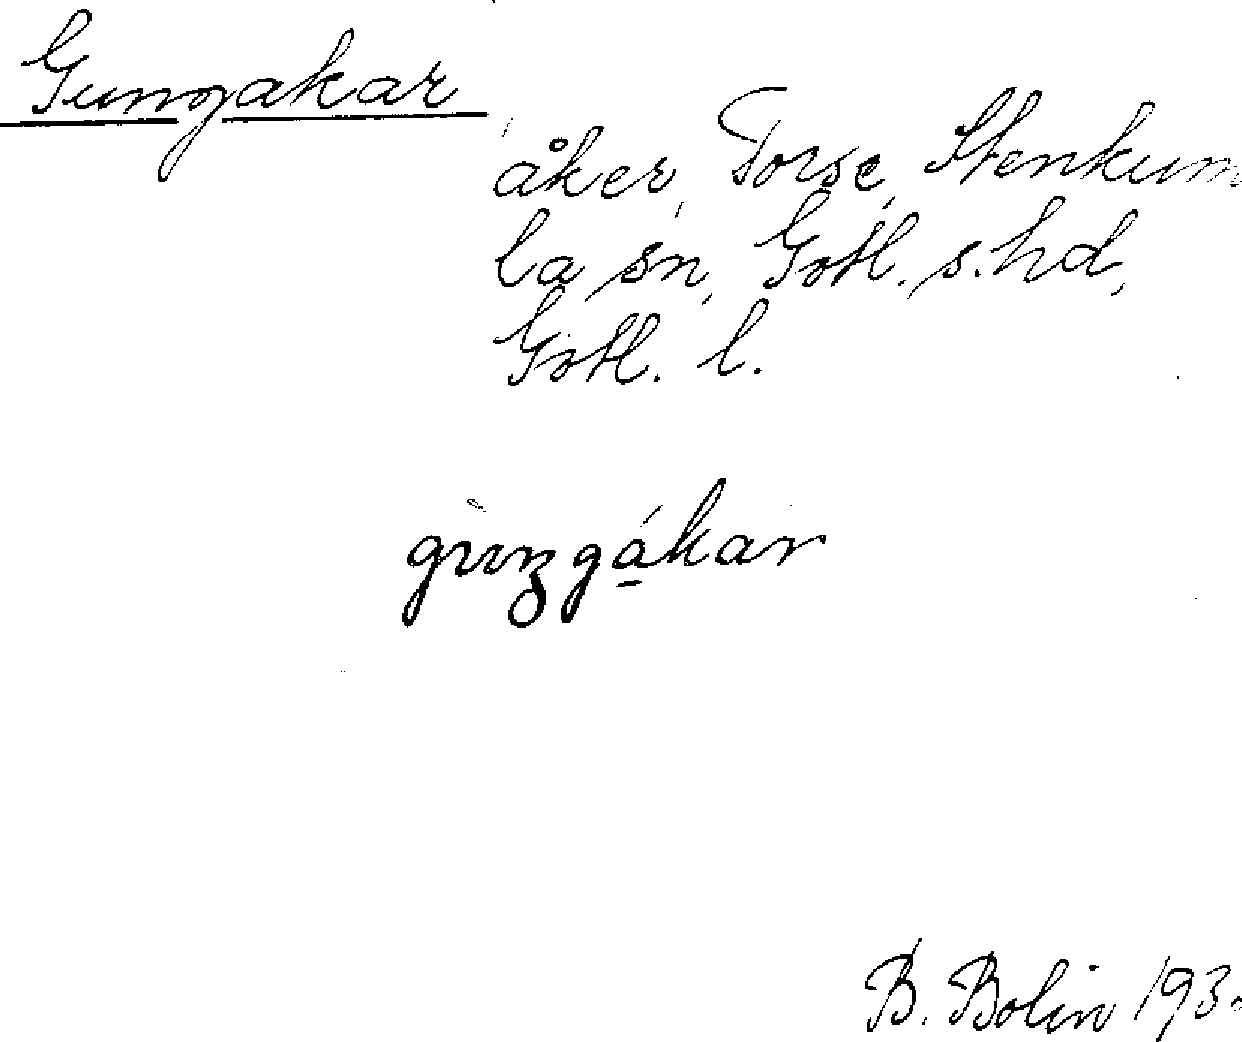 Gungakar
åker, Torse, Stenkum
la sn, Gotl. s. hd,
Gotl. l.
B. Bolin 193